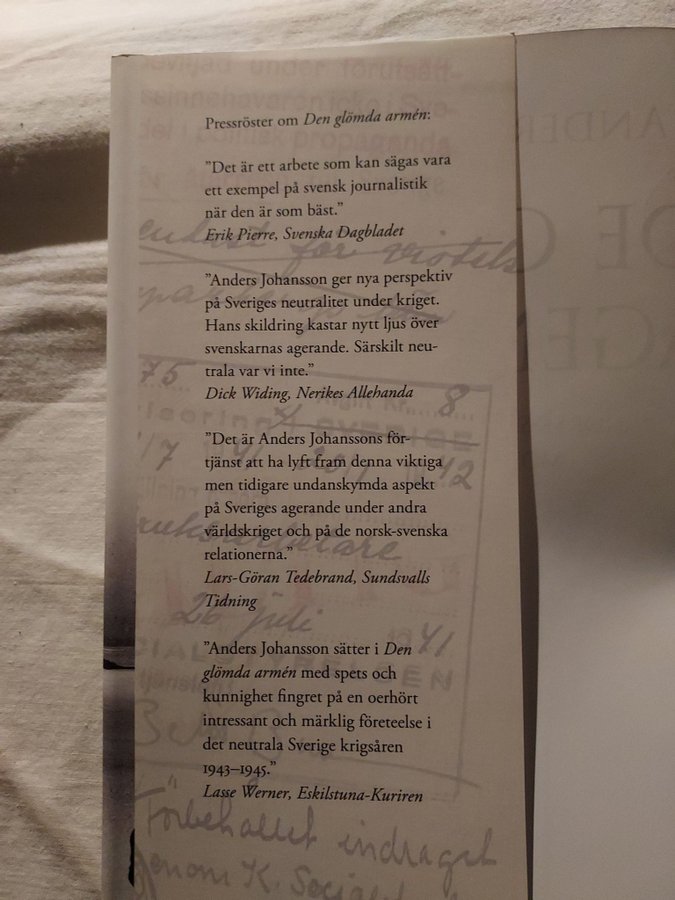 Pressröster om Den glömda armén:
"Det är ett arbete som kan sägas vara
ett exempel på svensk journalistik
när den är som bäst."
Erik Pierre, Svenska Dagbladet
"Anders Johansson ger nya perspektiv
på Sveriges neutralitet under kriget.
Hans skildring kastar nytt ljus över
svenskarnas agerande. Särskilt neu-
trala var vi inte."
Dick Widing, Nerikes Allehanda
"Det är Anders Johanssons för-
tjänst att ha lyft fram denna viktiga
men tidigare undanskymda aspekt
på Sveriges agerande under andra
världskriget och på de norsk-svenska
relationerna."
Lars-Göran Tedebrand, Sundsvalls
Tidning
"Anders Johansson sätter i Den
glömda armén med spets och
kunnighet fingret på en oerhört
intressant och märklig företeelse i
det neutrala Sverige krigsåren
1943–1945."
Lasse Werner, Eskilstuna-Kuriren
75
8
12
26 juli
41
Förbehållet indraget
genom K.
ANDER
DE